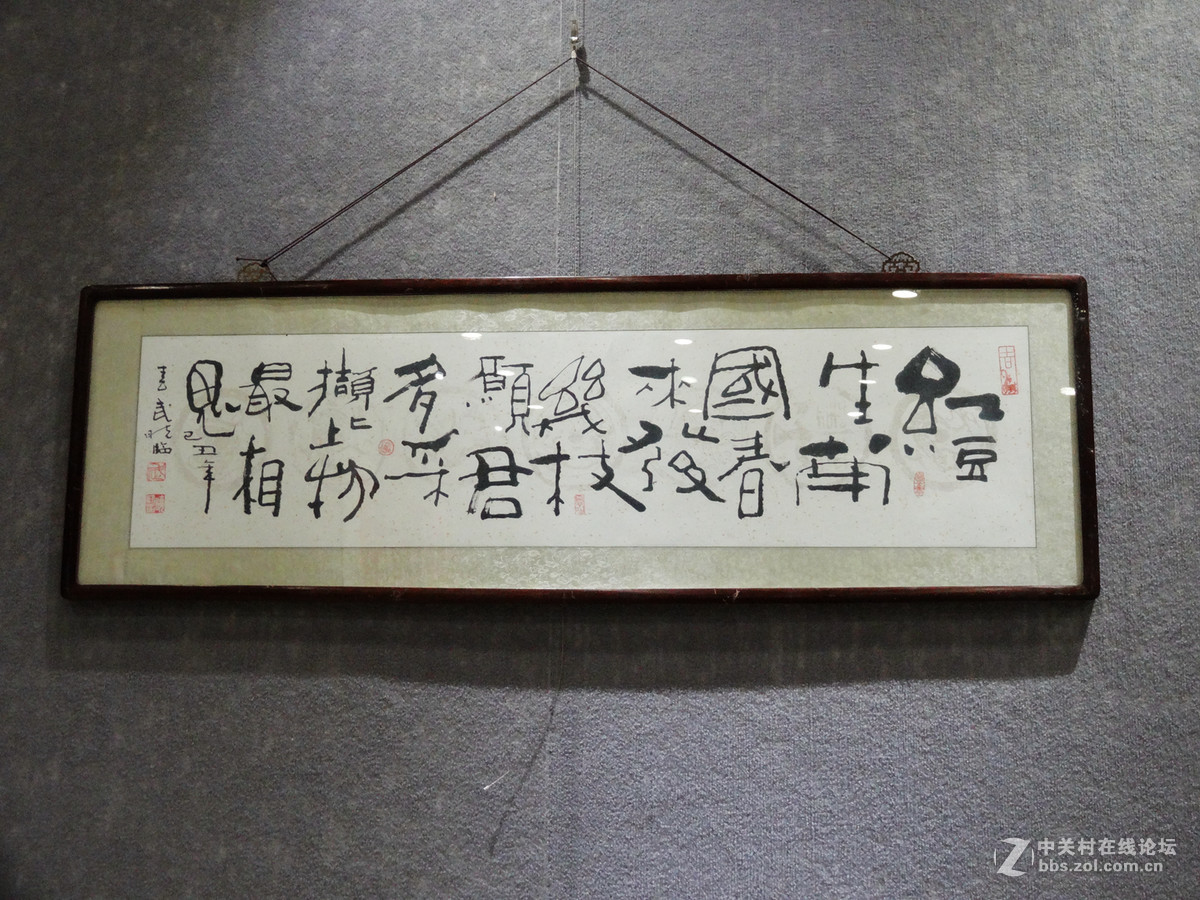 紅豆
生南
國春
來發
幾枝
願君
多采
擷此物
最相
思 己丑年
中关村在线论坛
bbs.zol.com.cn